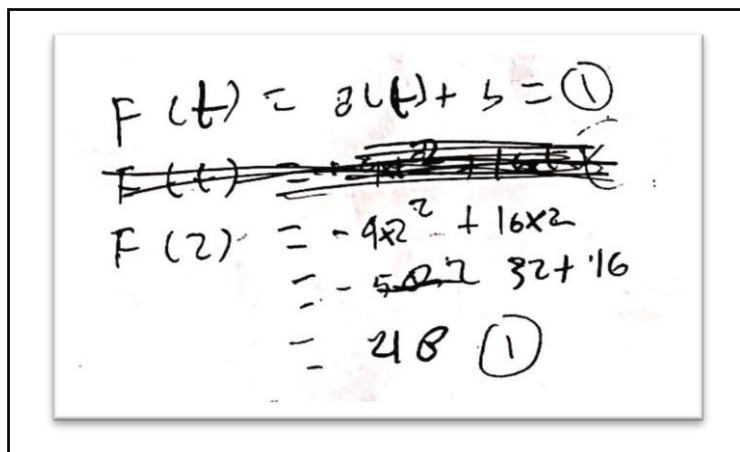 F (t) = a(t) + b = ①
F (2) = - 4x2² + 16x2
= - 32 + 16
= 48 ①